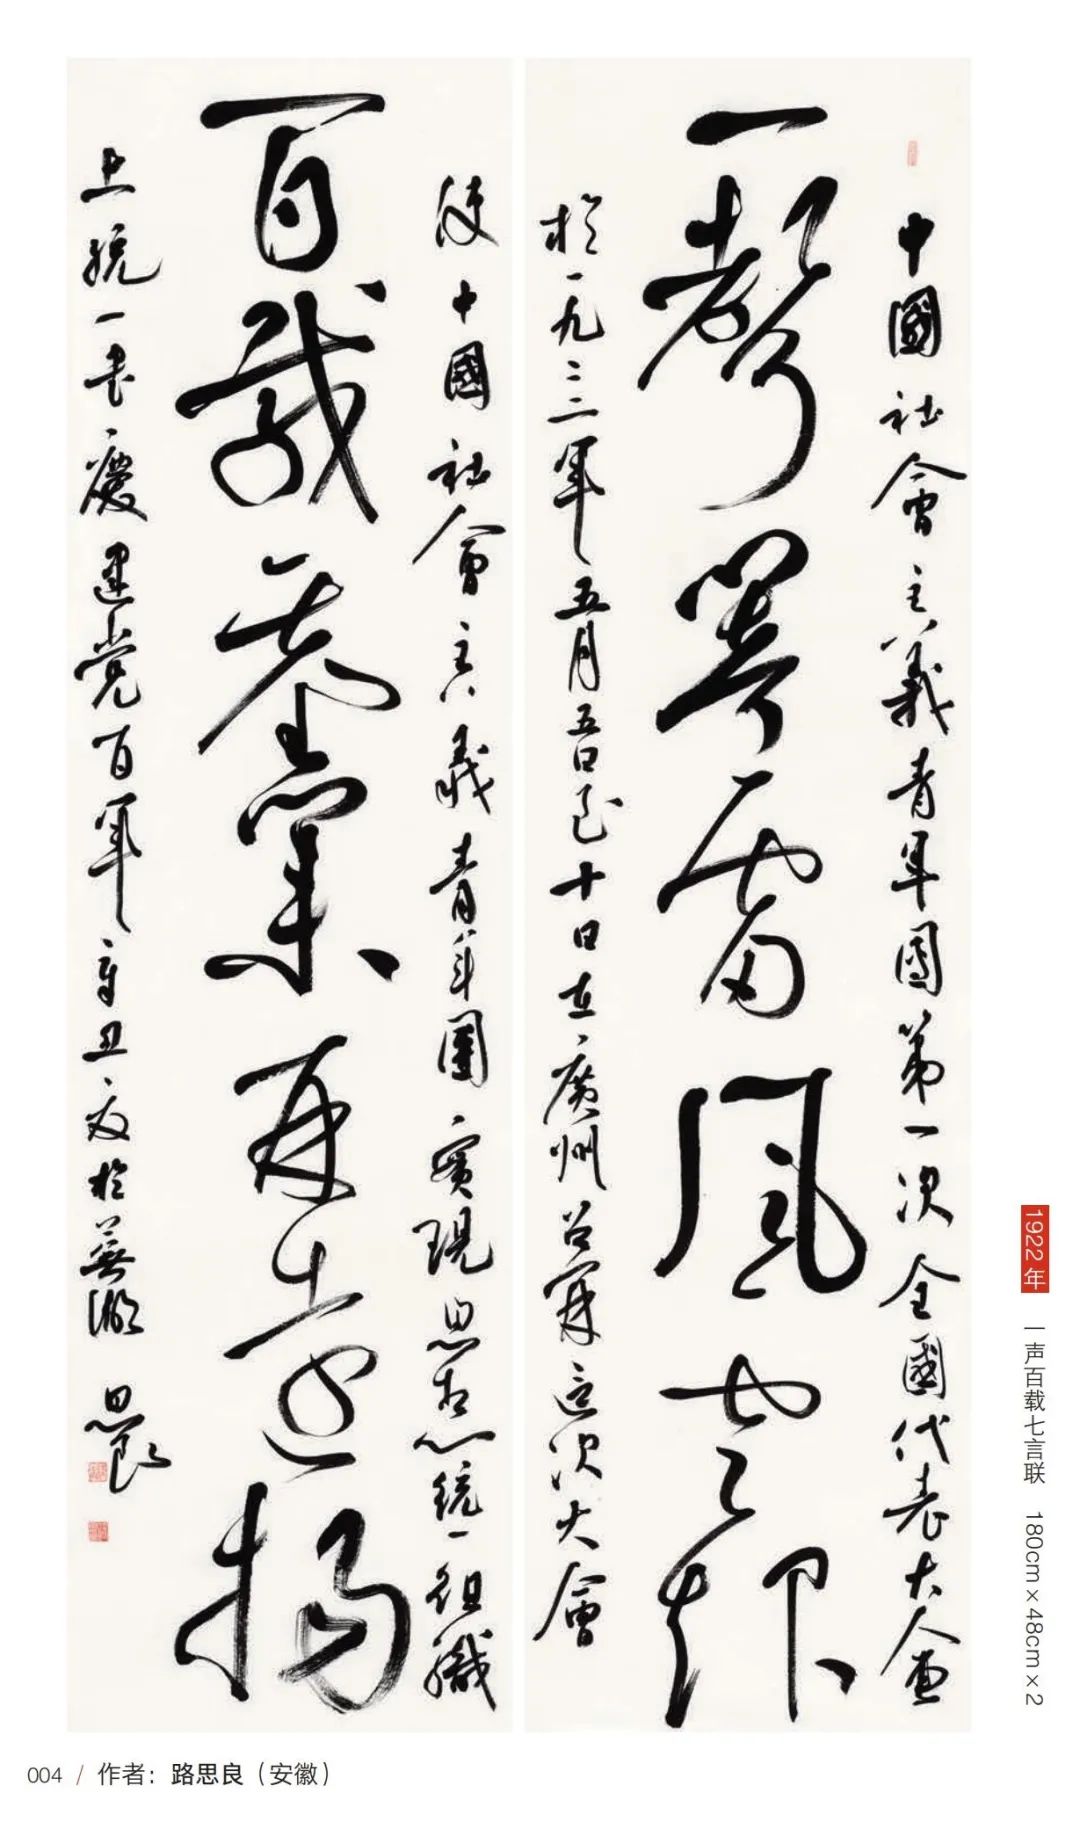 中國社會主義青年團第一次全國代表大會
一聲雷風雲
於一九二二年五月五日至十日在廣州召開這次大會
使中國社會主義青年團實現思想統一組織
百載基業再遠揚
上統一書慶建党百年辛丑夏於蕪湖 思良
1922年 一声百载七言联 180cm×48cm×2
004 / 作者：路思良（安徽）